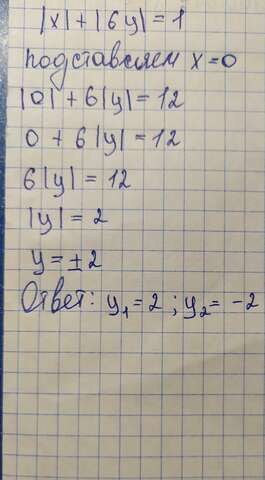 |x| + |6y| = 1
подставляем x = 0
|0| + 6|y| = 12
0 + 6|y| = 12
6|y| = 12
|y| = 2
y = ± 2
Ответ: y₁ = 2 ; y₂ = -2